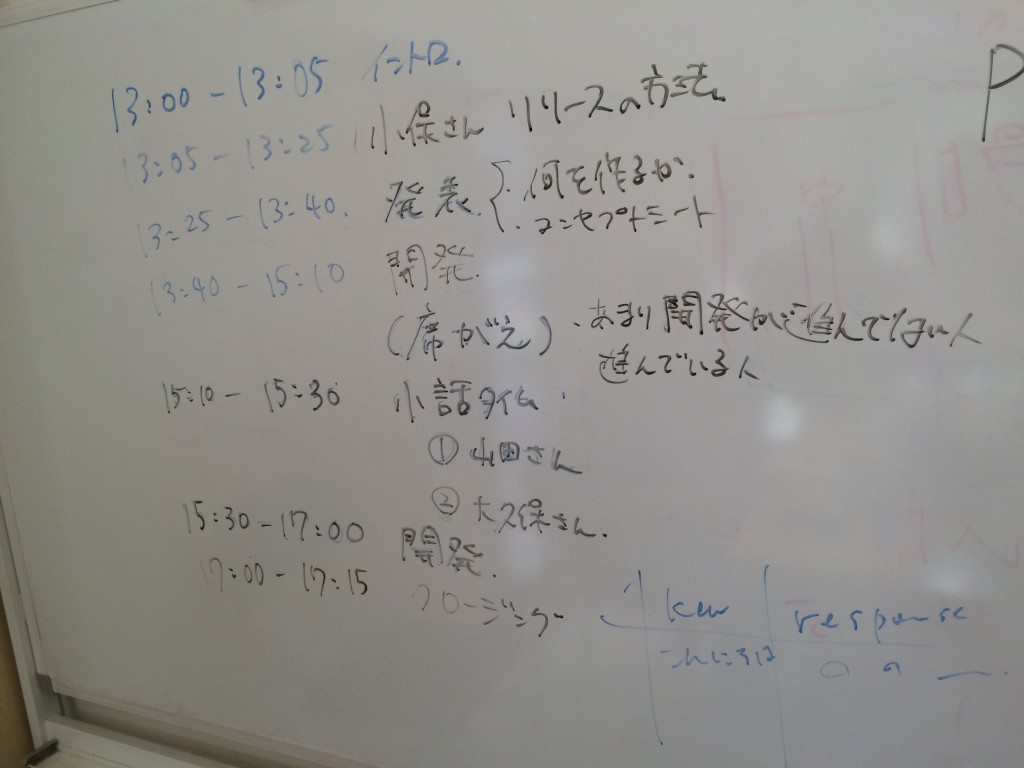 13:00 - 13:05 イントロ.
13:05 - 13:25 小保さん リリースの方法
13:25 - 13:40. 発表. { ・何を作るか.
・コンセプトシート
13:40 - 15:10 開発.
(席がえ) ・あまり開発が進んでない人
進んでいる人
15:10 - 15:30 小話タイム.
① 山田さん
② 大久保さん.
15:30 - 17:00 開発.
17:00 - 17:15 クロージング
key response
こんにちは
P